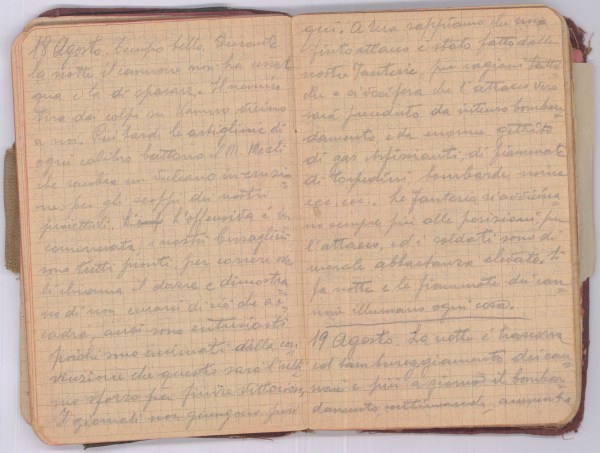 18 Agosto. Tempo bello. Durante
la notte il cannone non ha cessato
qua e là di sparare. Il nemico
tira dei colpi su vicino
a noi. Più tardi le artiglierie di
ogni calibro battono il M.
che sembra un vulcano in eruzio-
ne per gli scoppi dei nostri
proiettili. l'offensiva è in-
cominciata, i nostri Bersaglieri
sono tutti pronti per correre ove
li chiama il dovere e dimostra
no di non curarsi di ciò che ac-
cadrà, anzi sono entusiasti
poichè sono animati dalla con-
vinzione che questo sarà l'ulti
mo sforzo per finire vittoriosi.
I giornali non giungono fino
qui. A sera sappiamo che una
finto attacco è stato fatto dalle
nostre fanterie, per ragioni tatti
che e si vocifera che l'attacco vero
sarà preceduto da intenso bombar-
damento e da enorme gettito
di gas asfissianti, di fiammate
di torpedini, bombarde,
ecc. ecc. Le fanterie si avvicina
no sempre più alle posizioni per
l'attacco, ed i soldati sono di
morale abbastanza elevato. Si
fa notte e le fiammate dei can-
noni illuminano ogni cosa.
19 Agosto. La notte è trascorsa
col tambureggiamento dei can
noni e più a giorno il bombar-
damento continuando, aumenta